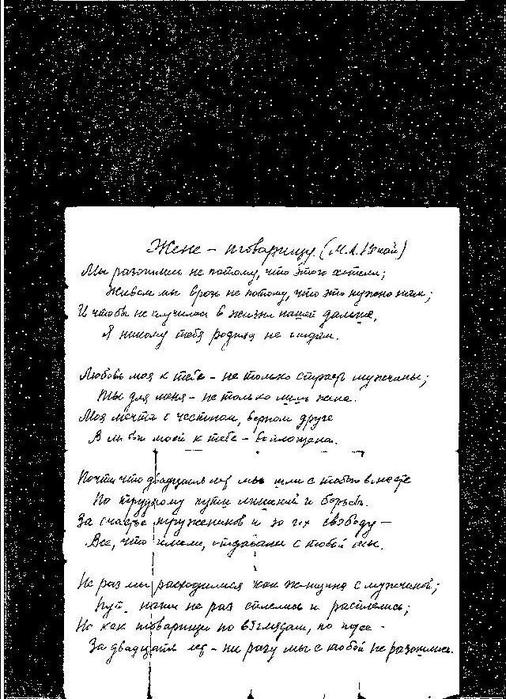 Жене – товарищу (М.А.
Мы разошлись не потому, что этого хотели;
Живем мы врозь не потому, что это нужно нам;
И чтобы не случилось в жизни нашей дальше,
Я никому тебя родная не отдам.
Любовь моя к тебе – не только страсть мужчины;
Ты для меня – не только лишь жена.
Моя мечта о честном, верном друге
В любви моей к тебе – воплощена.
Почти что двадцать лет мы шли с тобою вместе
По трудному пути лишений и борьбы.
За счастье тружеников и за их свободу –
Все, что имели, отдавали с тобой мы.
Не раз мы расходились как женщина с мужчиной;
Пути наши не раз сплелись и расплелись;
Но как товарищи по взглядам, по
За двадцать лет – ни разу мы с тобой не разошлись.